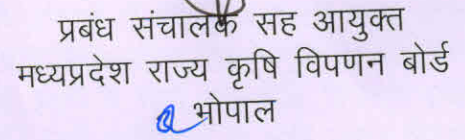 प्रबंध संचालक सह आयुक्त
मध्यप्रदेश राज्य कृषि विपणन बोर्ड
भोपाल